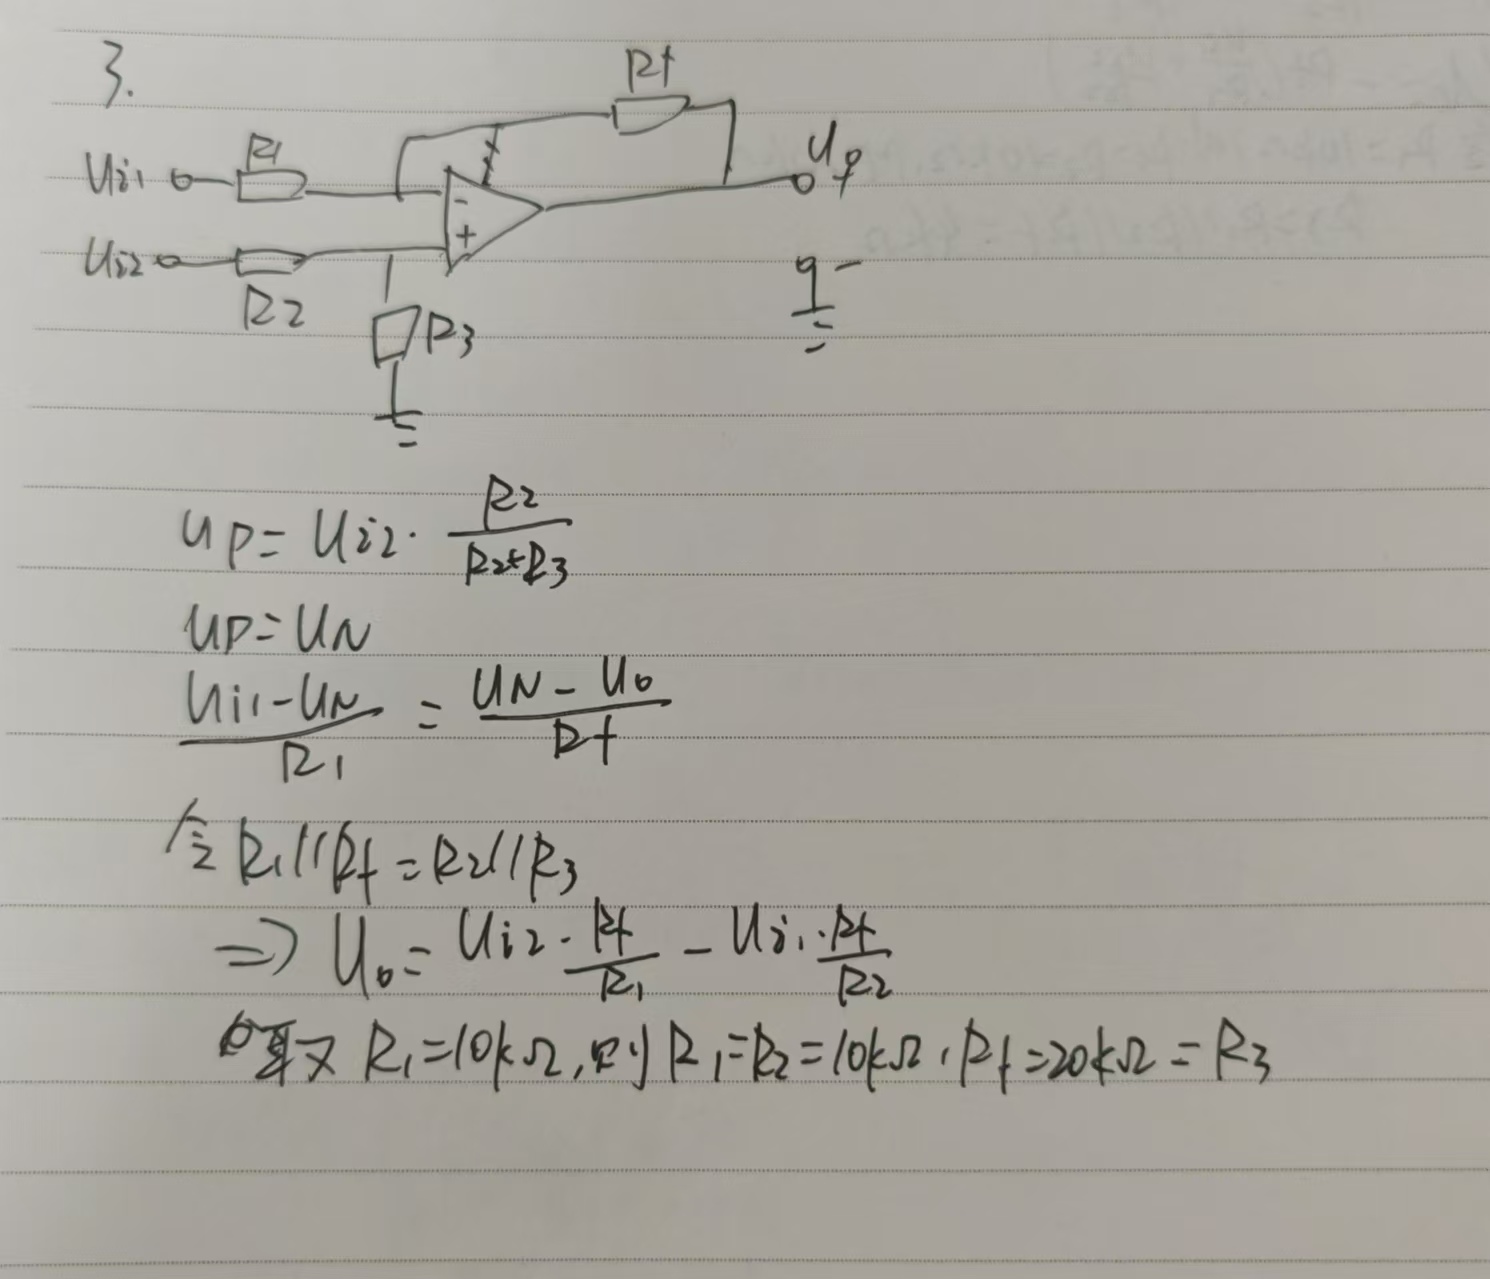 3.
Rf
R1
Ui1
Uo
-
+
Ui2
R2
R3
-
UP=Ui2·R2/(R2+R3)
UP=UN
(Ui1-UN)/R1=(UN-Uo)/Rf
令R1//Rf=R2//R3
=>Uo=Ui2·Rf/R1-Ui1·Rf/R2
取R1=10kΩ,则R1=R2=10kΩ,Rf=20kΩ=R3